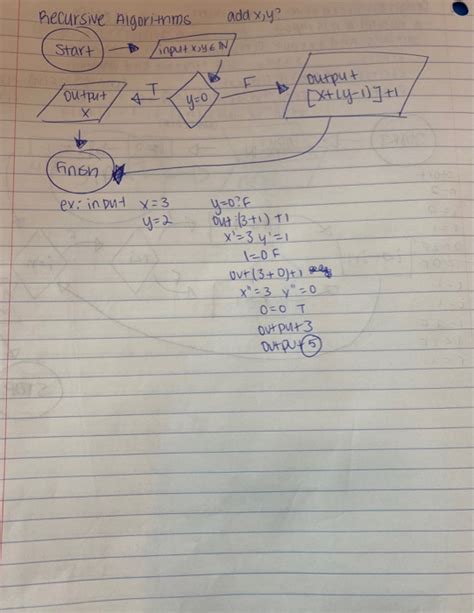 Recursive Algorithms add x,y?
Start
input x,y ∈ ℕ
output
x
T
y=0
F
output
[x+(y-1)]+1
Finish
ex: input x=3 y=0? F
y=2 out (3+1)+1
x'=3 y'=1
1=0 F
out (3+0)+1
x"=3 y"=0
0=0 T
output 3
output 5